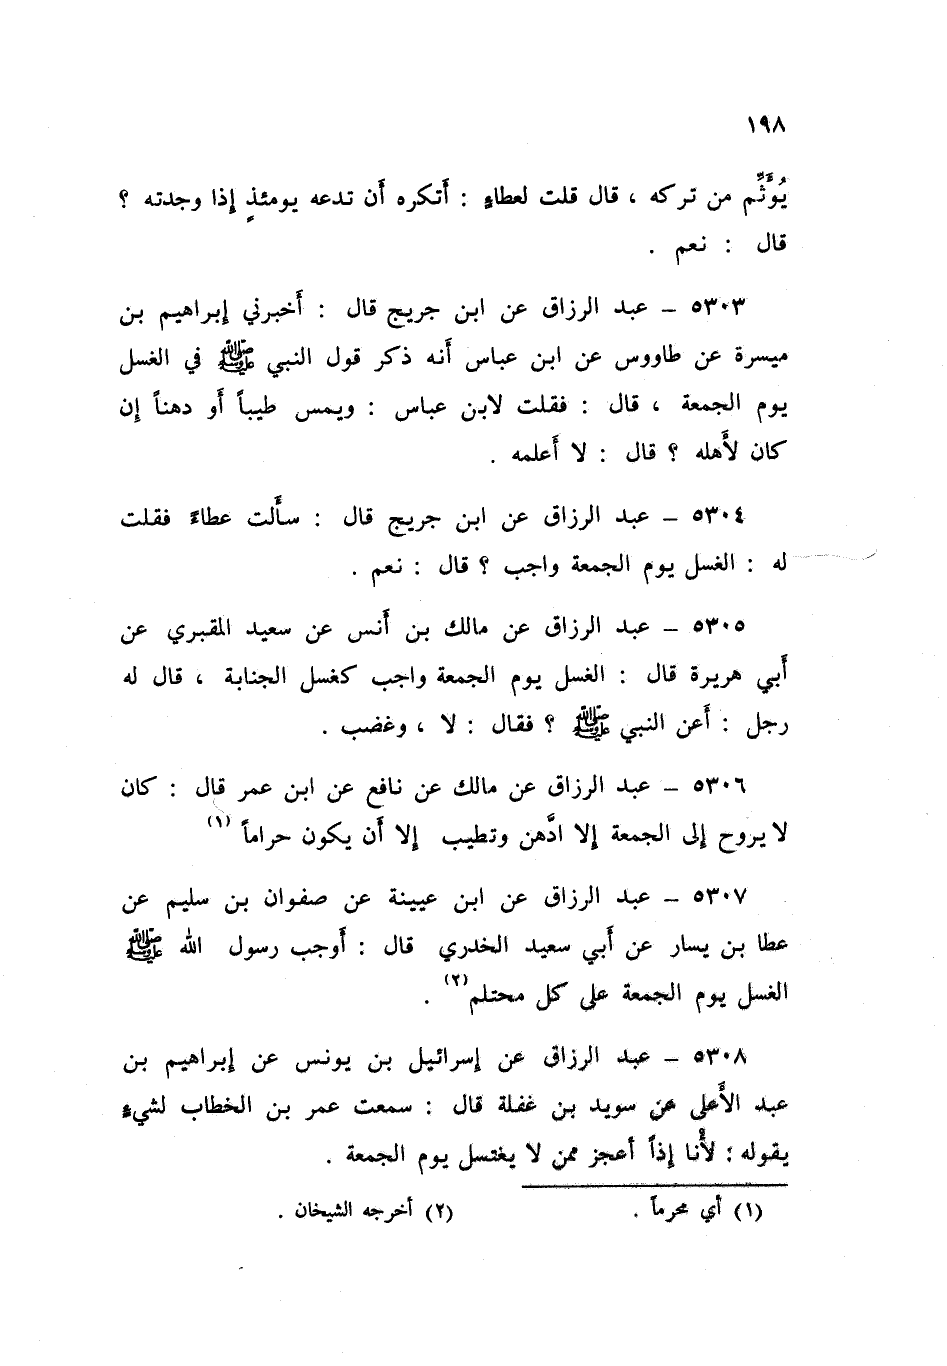 ١٩٨
يُؤَثِّم من تركه ، قال قلت لعطاءٍ : أَتكره أَن تدعه يومئذٍ إِذا وجدته ؟
قال : نعم .
٥٣٠٣ – عبد الرزاق عن ابن جريج قال : أَخبرني إِبراهيم بن
ميسرة عن طاووس عن ابن عباس أَنه ذكر قول النبي ﷺ في الغسل
يوم الجمعة ، قال : فقلت لابن عباس : ويمس طيباً أَو دهناً إن
كان لأَهله ؟ قال : لا أَعلمه .
٥٣٠٤ – عبد الرزاق عن ابن جريج قال : سأَلت عطاءً فقلت
له : الغسل يوم الجمعة واجب ؟ قال : نعم .
٥٣٠٥ – عبد الرزاق عن مالك بن أَنس عن سعيد المقبري عن
أَبي هريرة قال : الغسل يوم الجمعة واجب كغسل الجنابة ، قال له
رجل : أَعن النبي ﷺ ؟ فقال : لا ، وغضب .
٥٣٠٦ – عبد الرزاق عن مالك عن نافع عن ابن عمر قال : كان
لا يروح إِلى الجمعة إِلا ادَّهن وتطيب إِلا أَن يكون حراماً (١)
٥٣٠٧ – عبد الرزاق عن ابن عيينة عن صفوان بن سليم عن
عطا بن يسار عن أَبي سعيد الخدري قال : أَوجب رسول الله ﷺ
الغسل يوم الجمعة على كل محتلم (٢) .
٥٣٠٨ – عبد الرزاق عن إِسرائيل بن يونس عن إِبراهيم بن
عبد الأَعلى عن سويد بن غفلة قال : سمعت عمر بن الخطاب لشيءٍ
يقوله : لأَنا إِذاً أعجز ممن لا يغتسل يوم الجمعة .
(١) أي محرماً . (٢) أخرجه الشيخان .